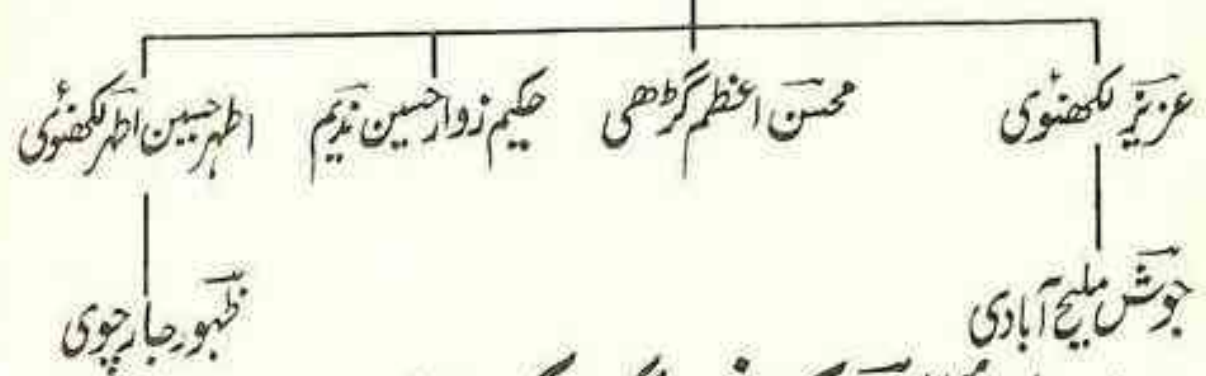 عزیز لکھنوٗی محسن اعظم گڑھی حکیم زوار حسین ندیم اطہر حسین اطہر لکھنوٗی
جوش ملیح آبادی ظہور جارچوی